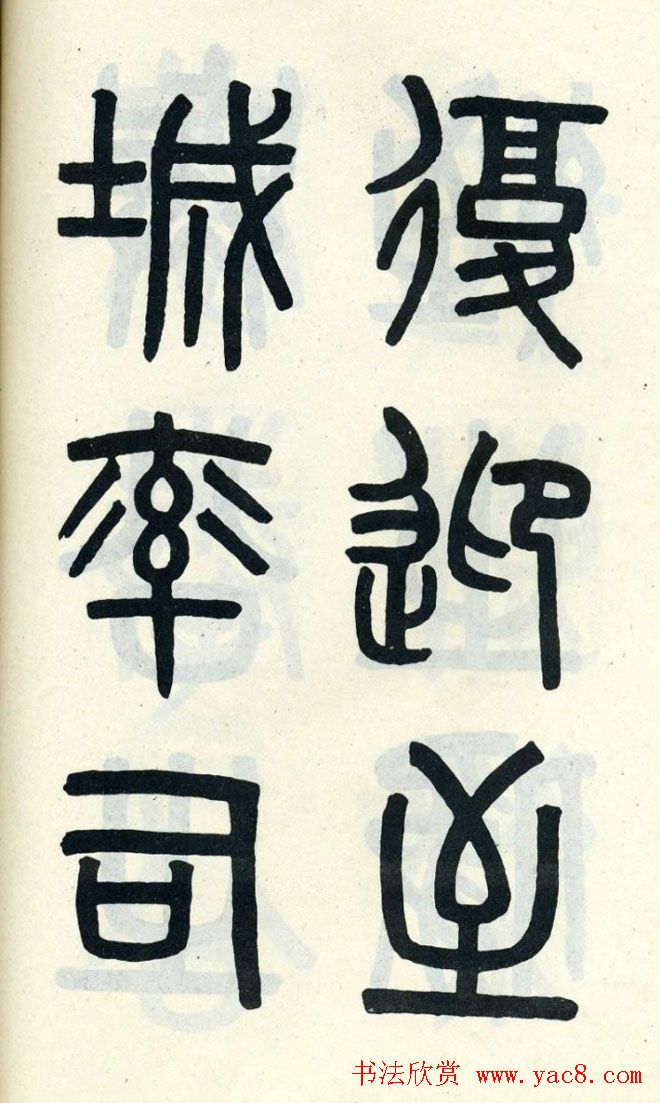 復迎至
城率司
书法欣赏 www.yac8.com